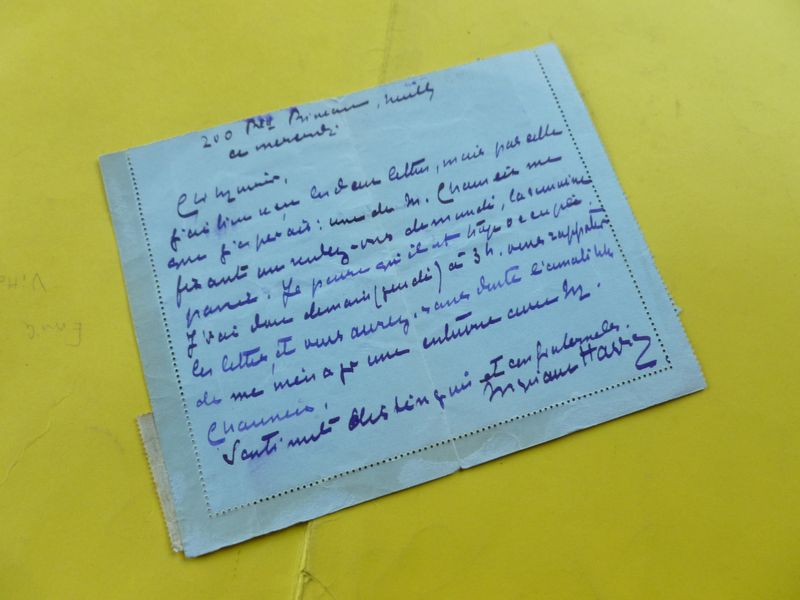 200 Bd Bineau, Neuilly
ce mercredi
Cher Monsieur,
J'ai bien eu les deux lettres, mais pas celle
que j'espérais : une de M. Chaumeix me
fixant un rendez-vous demandé, la semaine
passée. Je pense qu'il est trop occupé.
J'irai donc demain (jeudi) à 3 h. vous rapporter
les lettres, et vous aurez, sans doute l'amabilité
de me ménager une entrevue avec M.
Chaumeix.
Sentiments distingués et confraternels.
Myriam Harry